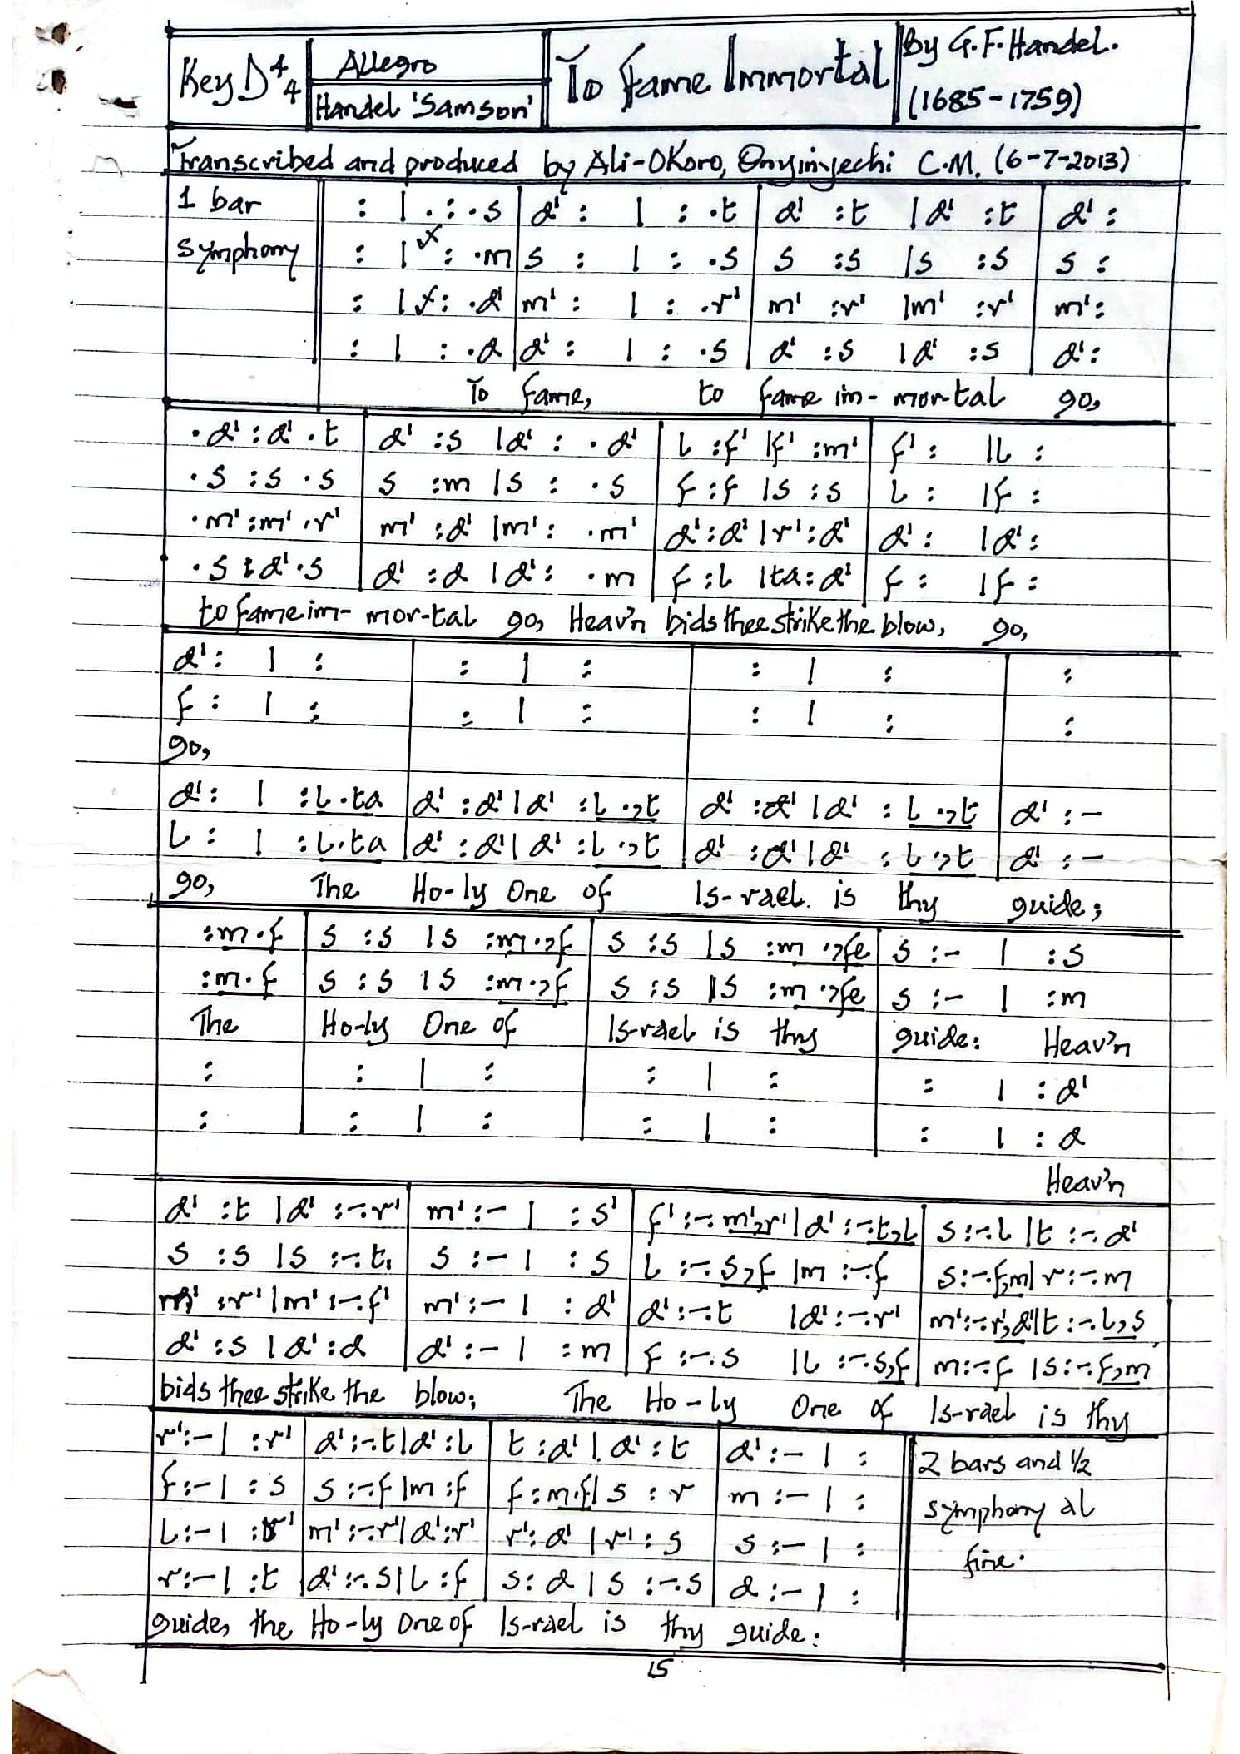 Key D 4/4 Allegro To Fame Immortal By G.F. Handel.
Handel 'Samson' (1685-1759)
Transcribed and produced by Ali-Okoro, Onyinyechi C.M. (6-7-2013)
1 bar : | . : .s | d' : | : .t | d' :t |d' :t | d' :
symphony : | x : .m | s : | : .s | s :s |s :s | s :
: | x : .d | m' : | : .r' | m' :r' |m' :r' | m' :
: | : .d | d' : | : .s | d' :s |d' :s | d' :
To fame, to fame im- mor-tal go,
.d' :d' .t | d' :s |d' : .d' | l :f' |f' :m' | f' : |l :
.s :s .s | s :m |s : .s | f :f |s :s | l : |f :
.m' :m' .r' | m' :d' |m' : .m' | d' :d' |r' :d' | d' : |d' :
.s :d' .s | d' :d |d' : .m | f :l |ta :d' | f : |f :
to fame im- mor-tal go, Heav'n bids thee strike the blow, go,
d' : | : | : | : | : | : | :
f : | : | : | : | : | : | :
go,
d' : | :l.ta | d' :d' |d' :l.,t | d' :d' |d' :l.,t | d' :-
l : | :l.ta | d' :d' |d' :l.,t | d' :d' |d' :l.,t | d' :-
go, The Ho-ly One of Is-rael. is thy guide;
:m.f | s :s |s :m.,f | s :s |s :m.,fe | s :- | :s
:m.f | s :s |s :m.,f | s :s |s :m.,fe | s :- | :m
The Ho-ly One of Is-rael is thy guide: Heav'n
: | : | : | : | : | : | :d'
: | : | : | : | : | : | :d
Heav'n
d' :t |d' :-.r' | m' :- | :s' | f' :-.m',r' |d' :-.t,l | s :-.l |t :-.d'
s :s |s :-.t, | s :- | :s | l :-.s,f |m :-.f | s :-.f,m |r :-.m
m' :r' |m' :-.f' | m' :- | :d' | d' :-.t |d' :-.r' | m' :-.r',d' |t :-.l,s
d' :s |d' :d | d' :- | :m | f :-.s |l :-.s,f | m :-.f |s :-.f,m
bids thee strike the blow; The Ho-ly One of Is-rael is thy
r' :- | :r' | d' :-.t |d' :l | t :d' |.d' :t | d' :- | : 2 bars and ½
f :- | :s | s :-.f |m :f | f :m.f |s :r | m :- | : symphony al
l :- | :r' | m' :-.r' |d' :r' | r' :d' |r' :s | s :- | : fine.
r :- | :t | d' :-.s |l :f | s :d |s :-.s | d :- | :
guide, the Ho-ly One of Is-rael is thy guide:
15